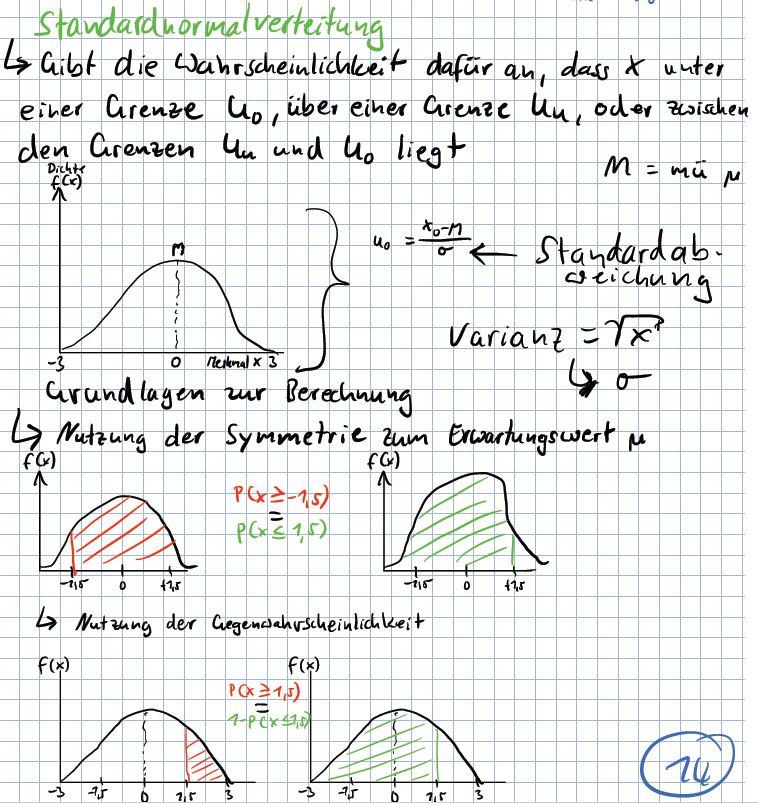 Standardnormalverteilung
↳ Gibt die Wahrscheinlichkeit dafür an, dass x unter
einer Grenze u₀, über einer Grenze uᵤ, oder zwischen
den Grenzen uᵤ und u₀ liegt
M = mü μ
Dichte
f(x)
M
-3 0 Merkmal x 3
u₀ = (x₀-M)/σ ← Standardab-
weichung
Varianz = √x²
↳ σ
Grundlagen zur Berechnung
↳ Nutzung der Symmetrie zum Erwartungswert μ
f(x)
-1,5 0 +1,5
P(x ≥ -1,5)
=
P(x ≤ 1,5)
f(x)
-1,5 0 +1,5
↳ Nutzung der Gegenwahrscheinlichkeit
f(x)
-3 -1,5 0 1,5 3
P(x ≥ 1,5)
=
1-P(x ≤ 1,5)
f(x)
-3 -1,5 0 1,5 3
14